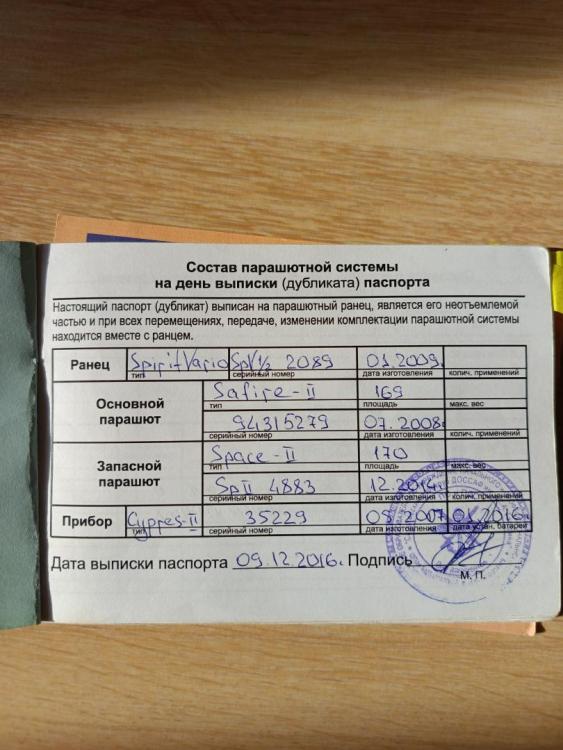 Состав парашютной системы
на день выписки (дубликата) паспорта
Настоящий паспорт (дубликат) выписан на парашютный ранец, является его неотъемлемой
частью и при всех перемещениях, передаче, изменении комплектации парашютной системы
находится вместе с ранцем.
Ранец Spirit Vario 2089 01.2009.
тип серийный номер дата изготовления колич. применений
Основной парашют Safire-II 169
площадь макс. вес
94315279 07.2008.
серийный номер дата изготовления колич. применений
Запасной парашют Space-II 170
тип площадь макс. вес
SpII 4883 12.2014.
серийный номер дата изготовления колич. применений
Прибор Cypres-II 35229 09.2007 01.2016.
тип серийный номер дата изготовления дата устан. батареи
Дата выписки паспорта 09.12.2016. Подпись
М. П.